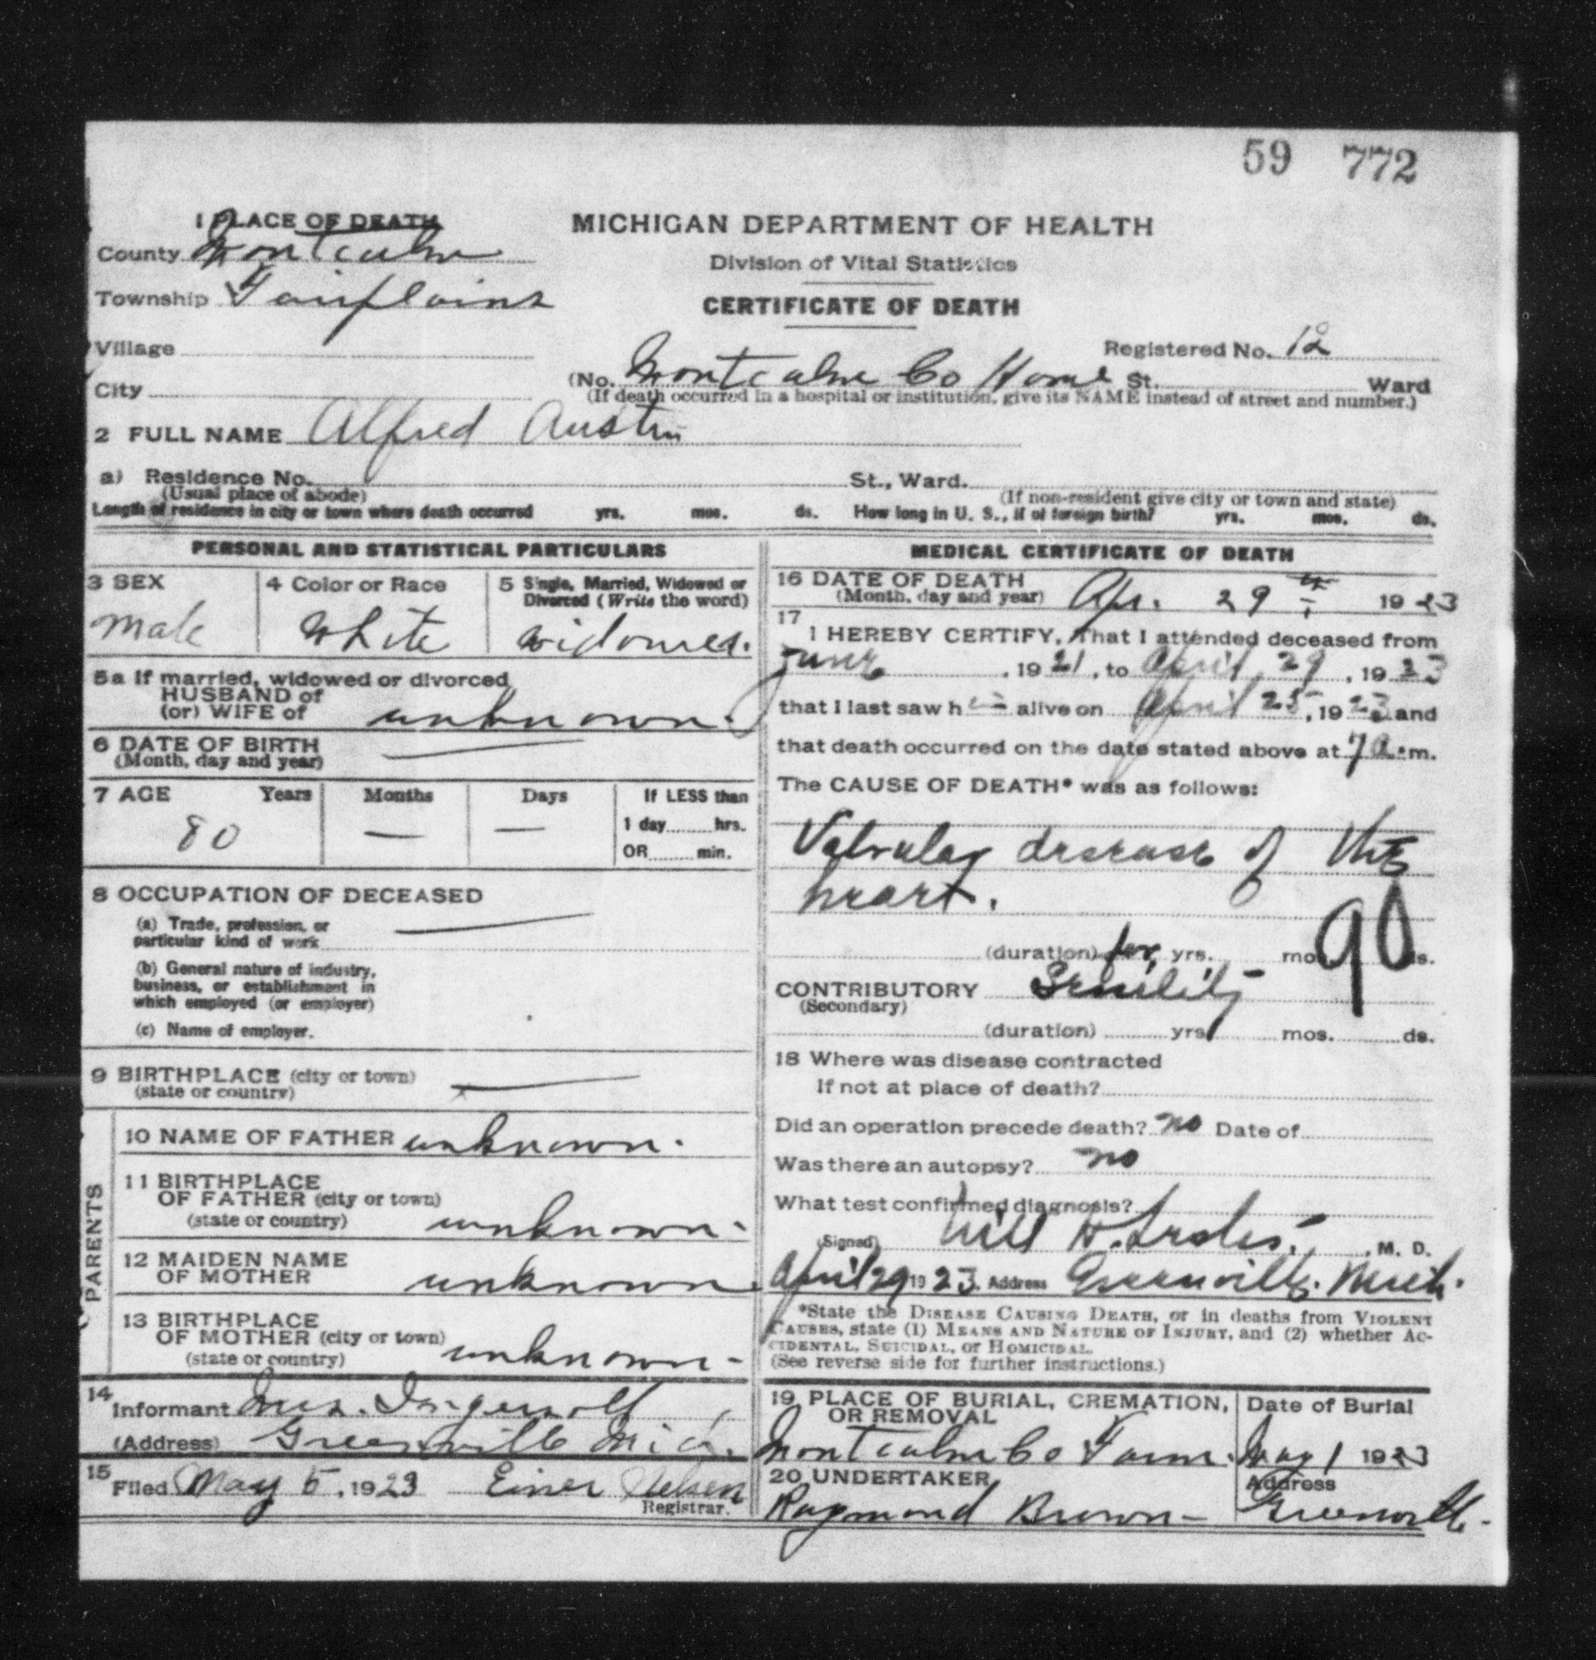 59 772
1 PLACE OF DEATH
MICHIGAN DEPARTMENT OF HEALTH
County Montcalm
Division of Vital Statistics
Township Fairplains
CERTIFICATE OF DEATH
Village
Registered No. 12
City
(No. Montcalm Co Home St. Ward
(If death occurred in a hospital or institution, give its NAME instead of street and number.)
2 FULL NAME Alfred Austin
a) Residence No. St., Ward.
(Usual place of abode) (If non-resident give city or town and state)
Length of residence in city or town where death occurred yrs. mos. ds. How long in U. S., if of foreign birth? yrs. mos. ds.
PERSONAL AND STATISTICAL PARTICULARS
3 SEX
male
4 Color or Race
White
5 Single, Married, Widowed or
Divorced (Write the word)
Widowed.
5a If married, widowed or divorced
HUSBAND of
(or) WIFE of unknown.
6 DATE OF BIRTH
(Month, day and year) —
7 AGE Years Months Days If LESS than
1 day hrs.
80 — —
OR min.
8 OCCUPATION OF DECEASED
(a) Trade, profession, or
particular kind of work —
(b) General nature of industry,
business, or establishment in
which employed (or employer)
(c) Name of employer.
9 BIRTHPLACE (city or town)
(state or country) —
PARENTS
10 NAME OF FATHER unknown.
11 BIRTHPLACE
OF FATHER (city or town)
(state or country) unknown.
12 MAIDEN NAME
OF MOTHER unknown
13 BIRTHPLACE
OF MOTHER (city or town)
(state or country) unknown-
14
Informant Mrs. Ingersoll
(Address) Greenville Mich.
15
Filed May 5, 1923 Einer Nelsen
Registrar.
MEDICAL CERTIFICATE OF DEATH
16 DATE OF DEATH
(Month, day and year) Apr. 29 1923
17
I HEREBY CERTIFY, That I attended deceased from
June, 1921, to April 29, 1923
that I last saw h im alive on April 25, 1923 and
that death occurred on the date stated above at 7 a.m.
The CAUSE OF DEATH* was as follows:
Valvular disease of the
heart.
90
(duration) yrs. mos. ds.
CONTRIBUTORY Senility
(Secondary)
(duration) yrs. mos. ds.
18 Where was disease contracted
If not at place of death?
Did an operation precede death? no Date of
Was there an autopsy? no
What test confirmed diagnosis?
(Signed) Will H. , M. D.
April 29 1923. Address Greenville. Mich.
*State the DISEASE CAUSING DEATH, or in deaths from VIOLENT
CAUSES, state (1) MEANS AND NATURE OF INJURY, and (2) whether AC-
CIDENTAL, SUICIDAL, or HOMICIDAL.
(See reverse side for further instructions.)
19 PLACE OF BURIAL, CREMATION,
OR REMOVAL
Montcalm Co Farm.
Date of Burial
May 1 1923
20 UNDERTAKER
Raymond Brown-
Address
Greenville-